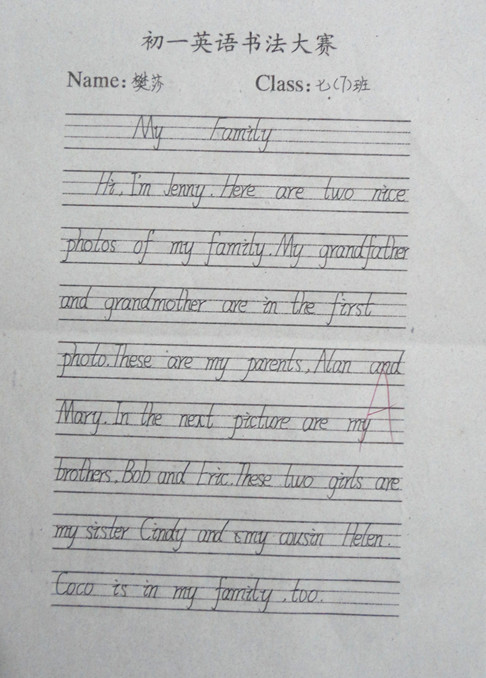 初一英语书法大赛
Name: 樊莎 Class: 七(7)班
My Family
Hi, I'm Jenny. Here are two nice
photos of my family. My grandfather
and grandmother are in the first
photo. These are my parents, Alan and
Mary. In the next picture are my
brothers, Bob and Eric. These two girls are
my sister Cindy and my cousin Helen.
Coco is in my family, too.
A